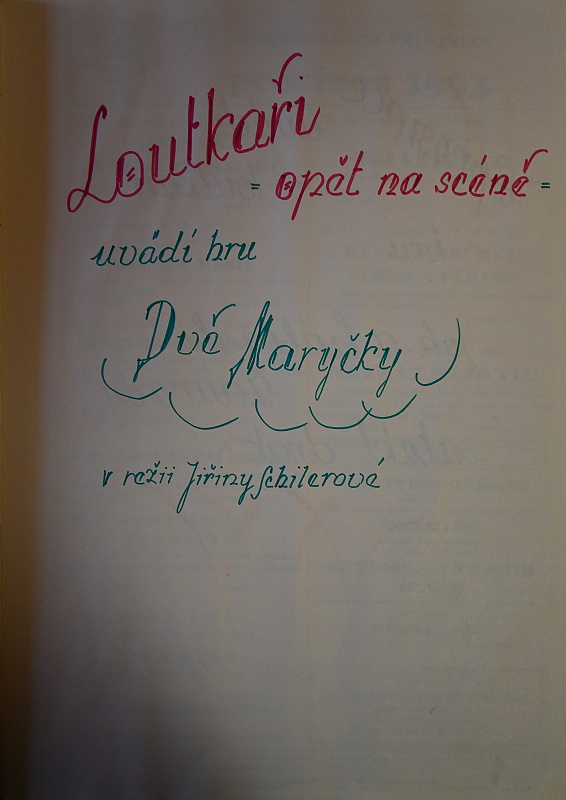 Loutkaři
= opět na scéně =
uvádí hru
Dvě Maryčky
v režii Jiřiny Schilerové